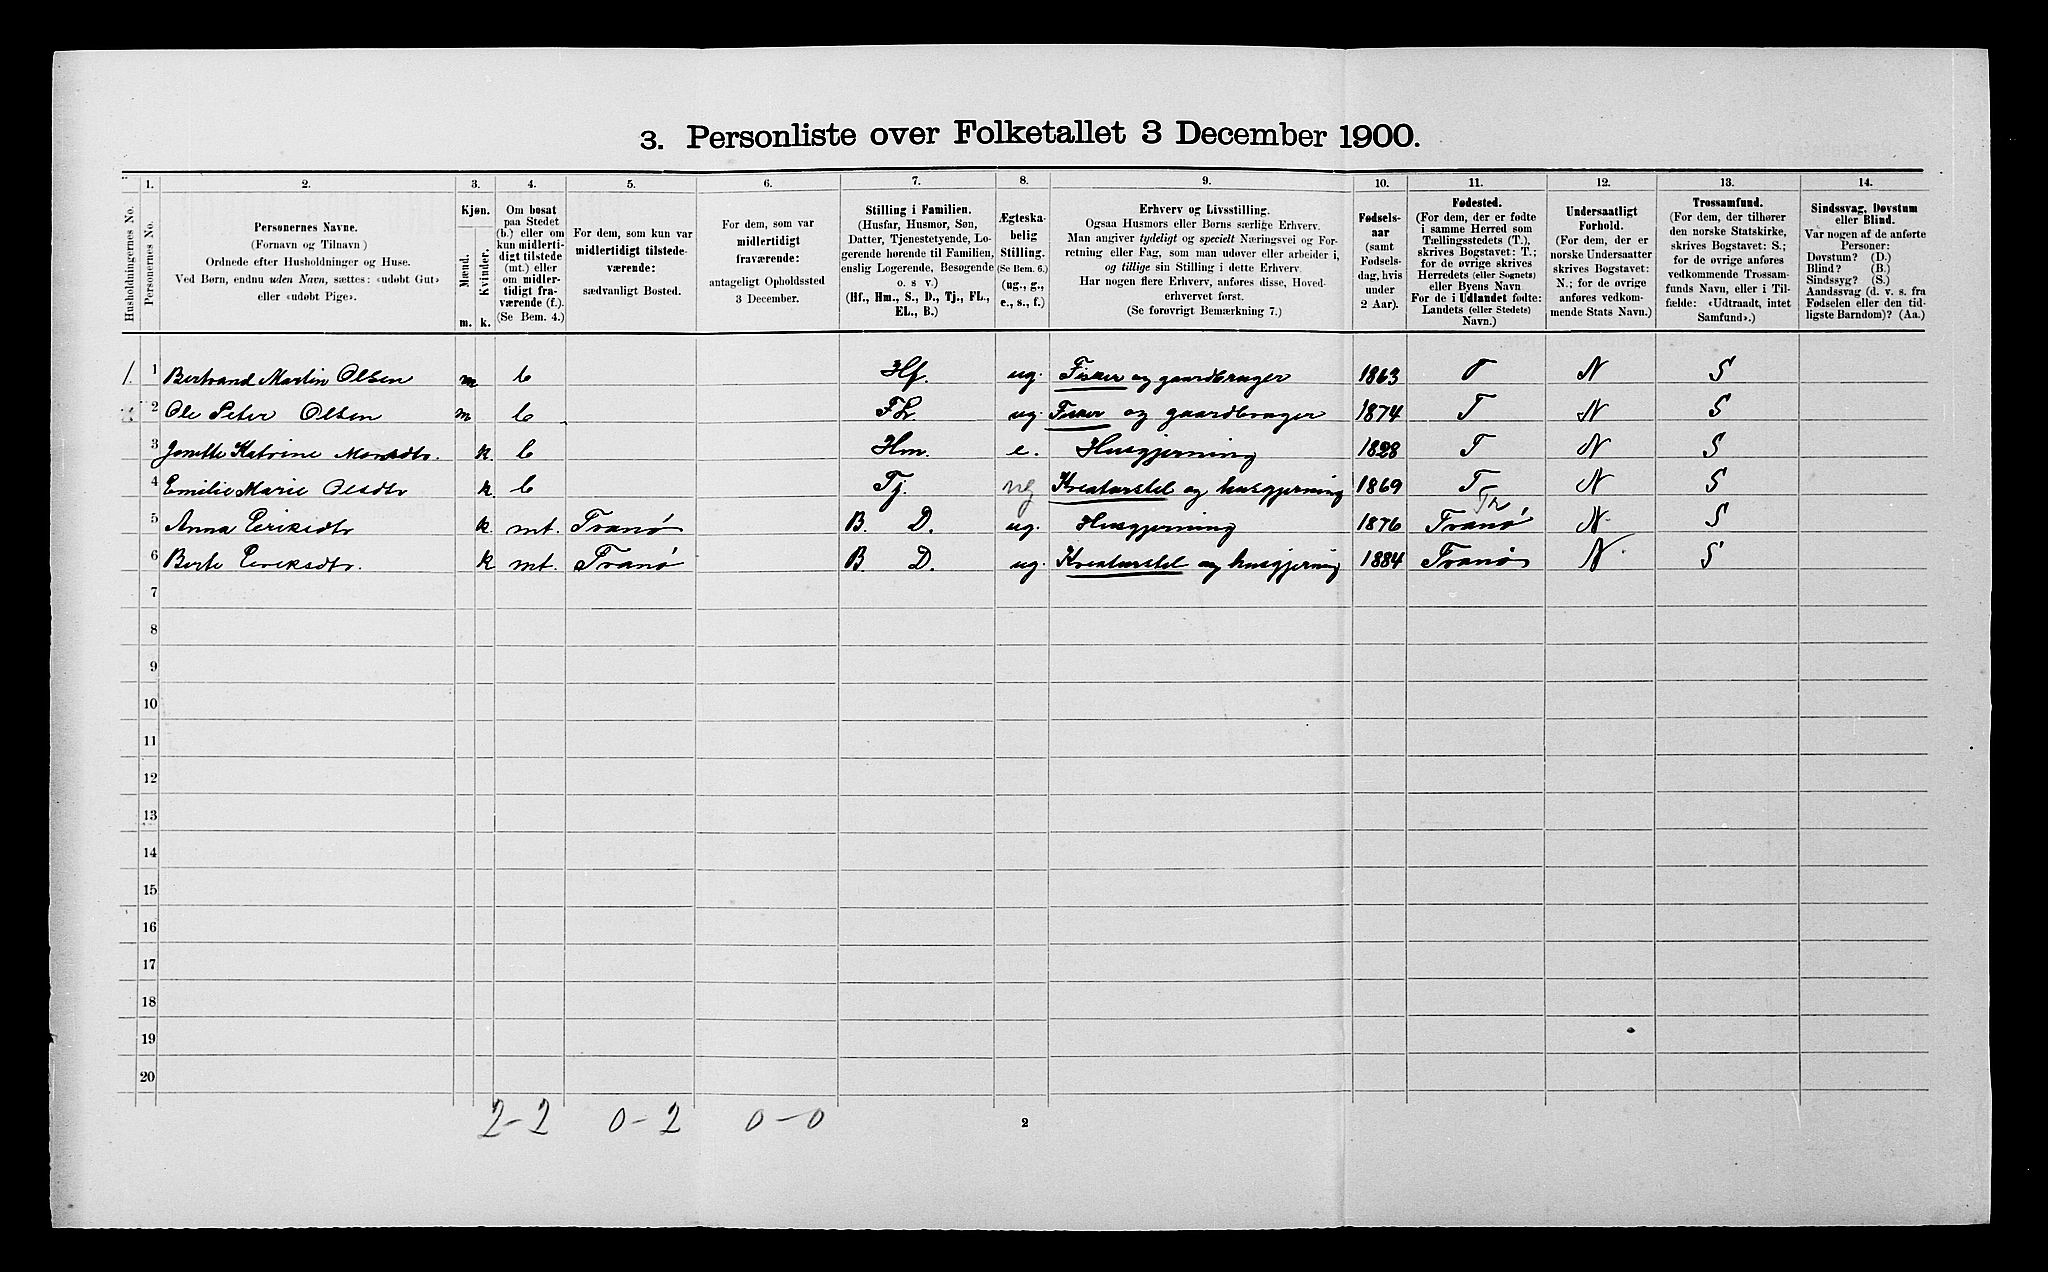 3. Personliste over Folketallet 3 December 1900.
1. 2. 3. 4. 5. 6. 7. 8. 9. 10. 11. 12. 13. 14.
Husholdningernes No.
Personernes No.
Personernes Navne.
(Fornavn og Tilnavn)
Ordnede efter Husholdninger og Huse.
Ved Børn, endnu uden Navn, sættes: «udøbt Gut»
eller «udøbt Pige».
Kjøn.
Mænd.
Kvinder.
m. k.
Om bosat
paa Stedet
(b.) eller om
kun midlerti-
digt tilstede
(mt.) eller
om midler-
tidigt fra-
værende (f.).
(Se Bem. 4.)
For dem, som kun var
midlertidigt tilstede-
værende:
sædvanligt Bosted.
For dem, som var
midlertidigt
fraværende:
antageligt Opholdssted
3 December.
Stilling i Familien.
(Husfar, Husmor, Søn,
Datter, Tjenestetyende, Lo-
gerende hørende til Familien,
enslig Logerende, Besøgende
o. s v.)
(Hf., Hm., S., D., Tj., FL.,
EL., B.)
Ægteska-
belig
Stilling.
(Se Bem. 6.)
(ug., g.,
e., s., f.)
Erhverv og Livsstilling.
Ogsaa Husmors eller Børns særlige Erhverv.
Man angiver tydeligt og specielt Næringsvei og For-
retning eller Fag, som man udøver eller arbeider i,
og tillige sin Stilling i dette Erhverv.
Har nogen flere Erhverv, anføres disse, Hoved-
erhvervet først.
(Se forøvrigt Bemærkning 7.)
Fødsels-
aar
(samt
Fødsels-
dag, hvis
under
2 Aar).
Fødested.
(For dem, der er fødte
i samme Herred som
Tællingsstedets (T.),
skrives Bogstavet: T.;
for de øvrige skrives
Herredets (eller Sognets)
eller Byens Navn
For de i Udlandet fødte:
Landets (eller Stedets)
Navn.)
Undersaatligt
Forhold.
(For dem, der er
norske Undersaatter
skrives Bogstavet:
N.; for de øvrige
anføres vedkom-
mende Stats Navn.)
Trossamfund.
(For dem, der tilhører
den norske Statskirke,
skrives Bogstavet: S.;
for de øvrige anføres
vedkommende Trossam-
funds Navn, eller i Til-
fælde: «Udtraadt, intet
Samfund».)
Sindssvag, Døvstum
eller Blind.
Var nogen af de anførte
Personer:
Døvstum? (D.)
Blind? (B.)
Sindssyg? (S.)
Aandssvag (d. v. s. fra
Fødselen eller den tid-
ligste Barndom)? (Aa.)
1. 1 Bertrand Martin Olsen m b Hf. ug. Fisker og gaardbruger 1863 T N S
2 Ole Peter Olsen m b FL ug. Fisker og gaardbruger 1874 T N S
3 Jonette Katrine Monsdtr. k. b Hm. e. Husgjerning 1828 T N S
4 Emilie Marie Olsdtr k. b Tj. ug Kreaturstel og husgjerning 1869 T N S
5 Anna Eriksdtr k. mt. Tranø B. D. ug. Husgjerning 1876 Tranø N. S
6 Berte Eriksdtr. k mt. Tranø B D. ug. Kreaturstel og husgjerning 1884 Tranø N. S
7
8
9
10
11
12
13
14
15
16
17
18
19
20
2-2 0-2 0-0
2